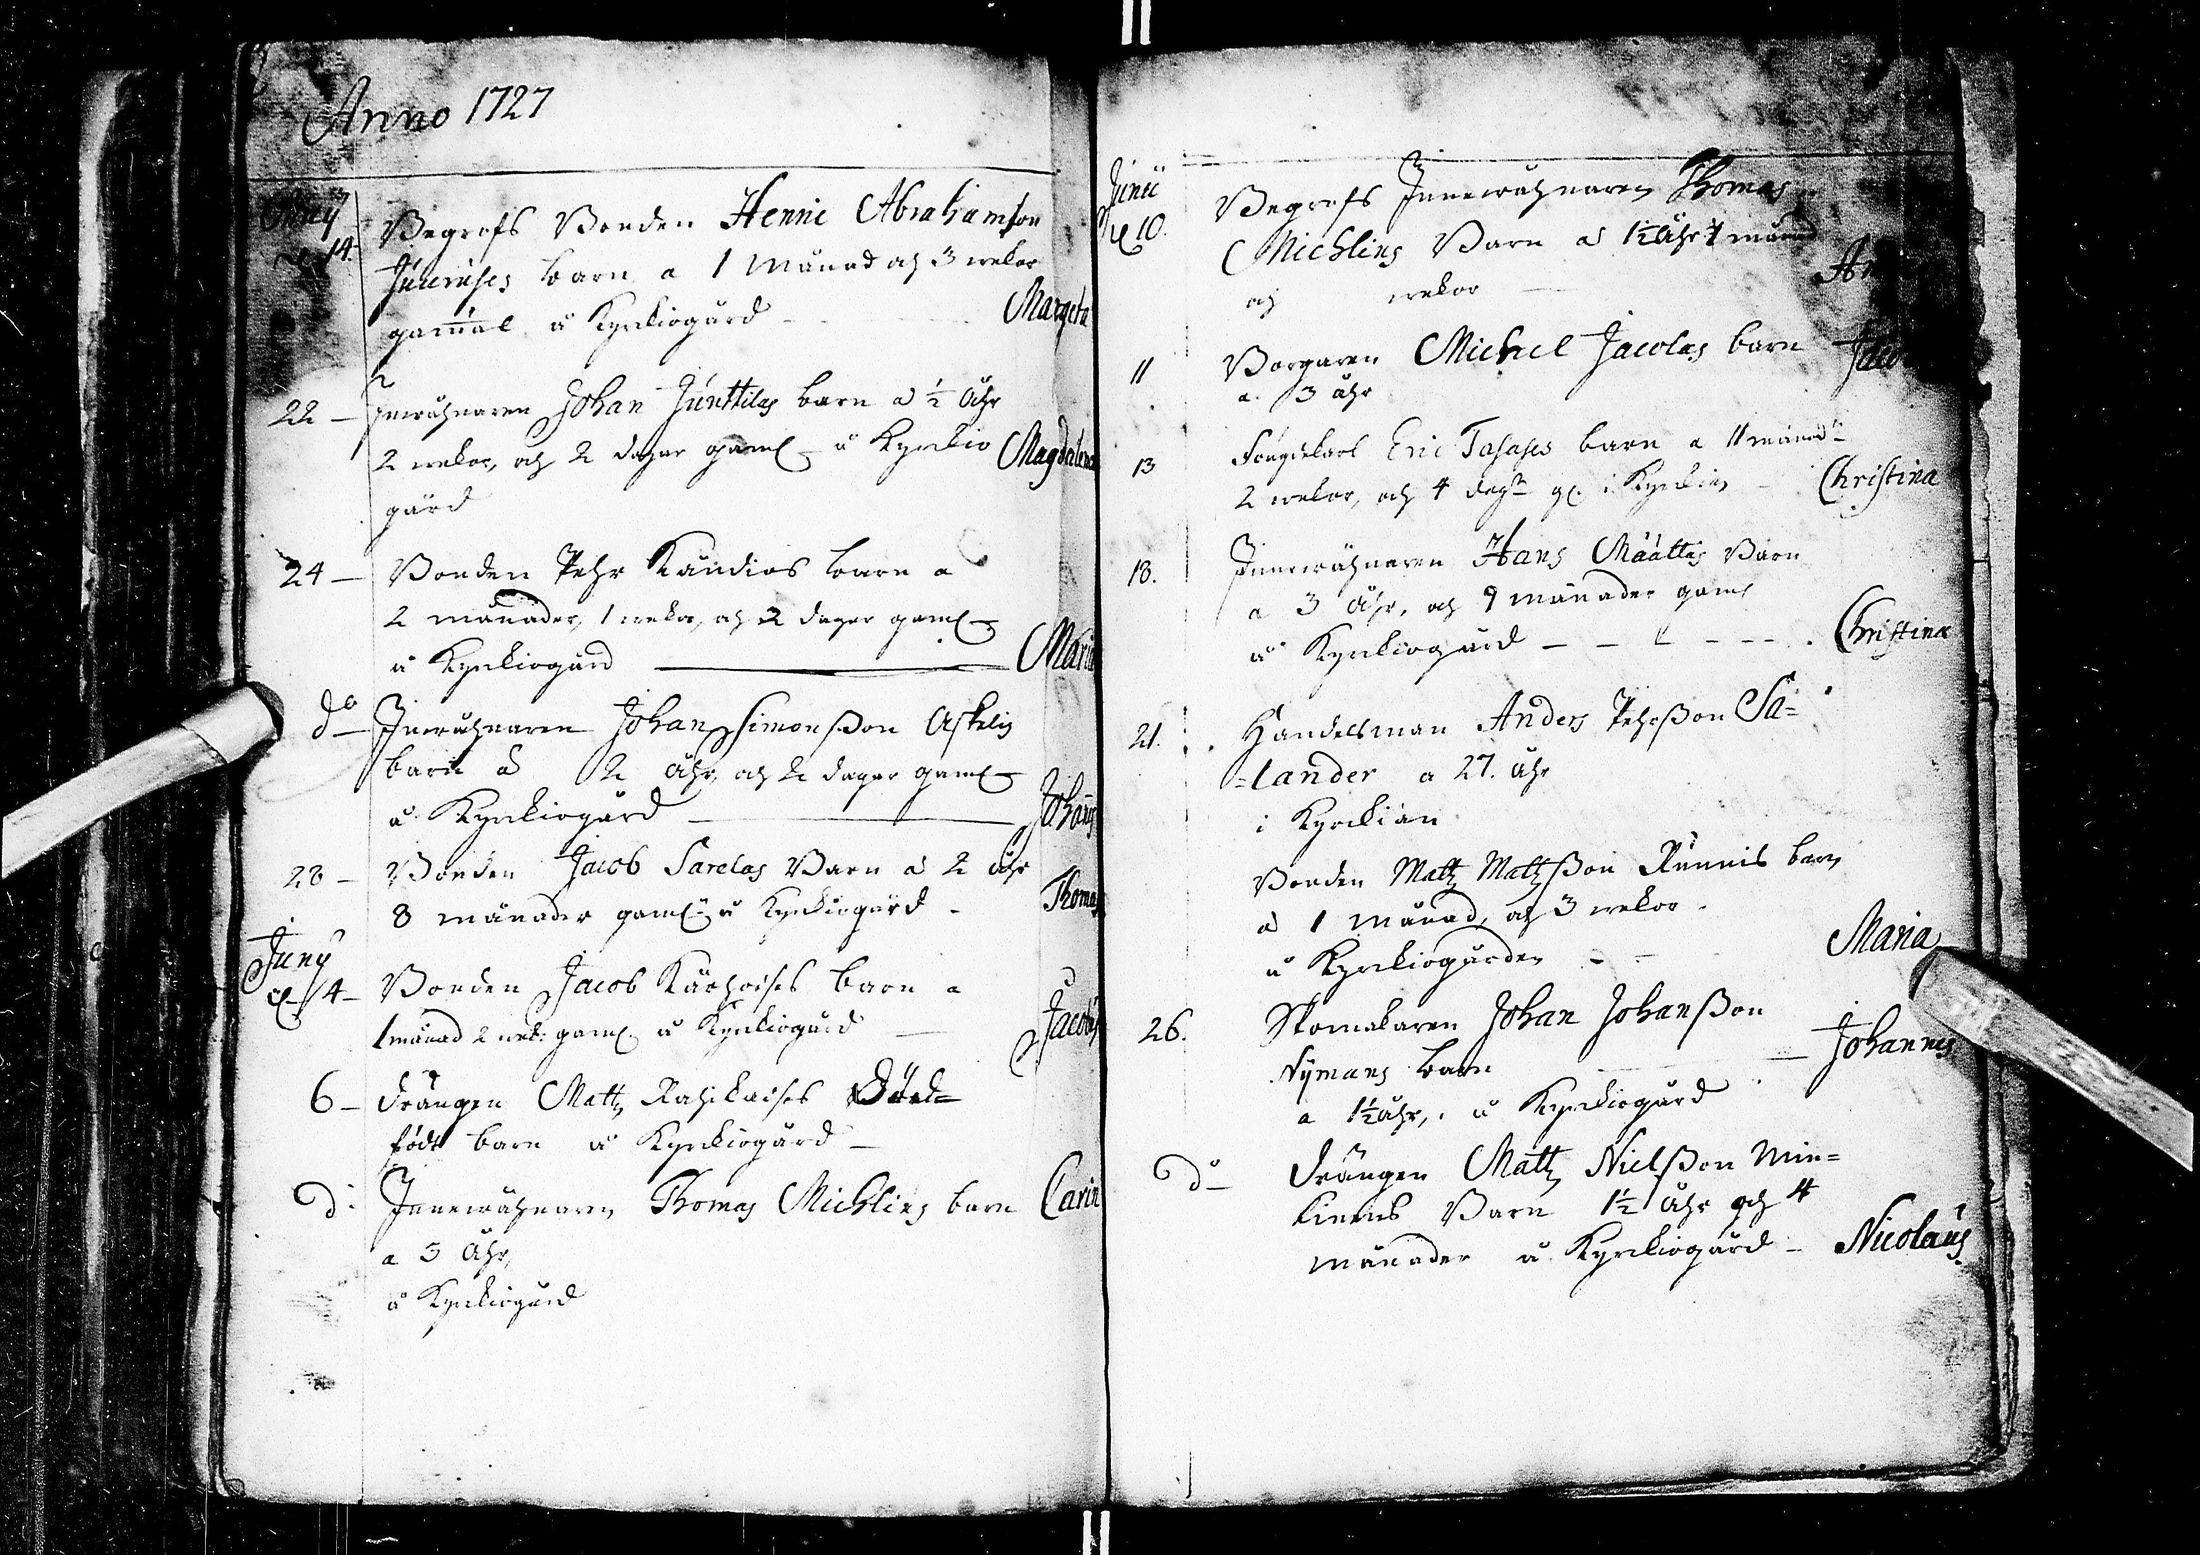 Anno 1727
Maÿ
d. 14.
Begrofs Bonden Henric Abrahamson
barn a 1 Månad och 3 wekor
gam̄al å Kyrkiogård - Margeta
22 – Inwåhnaren Johan Junttilas barn a ½ Åhr
2 wekor, och 2 dagar gaml å Kyrkio Magdalena
gård
24 – Bonden Pehr Kaudios barn a
2 månader, 1 weka, och 2 dagar gaml
å Kyrkiogård Maria
do – Inwåhnaren Johan Simonsson Askelis
barn a 2 åhr och 2 dagar gaml
å Kyrkiogård Johannes
28 – Bonden Jacob Sarelas Barn a 2 åhr
8 månader gaml å Kyrkiogård - Thomas
Junÿ
d. 4 – Bonden Jacob barn a
1 månad 2 wek: gaml. å Kyrkiogård Jacobus
6 – Drängen Matz Rahikaises Död=
födt barn å Kyrkiogård –
do Innewåhnaren Thomas Michlins barn Carin
a 3 Åhr,
å Kyrkiogård
Junii
d. 10. Begrofs Innewåhnaren Thomas
Michlins Barn a 1½ Åhr månad
och wekor
11 Borgaren Michel Jacolas barn
a. 3 åhr
13 Eric Tasases barn a 11 månad
2 wekor, och 4 dagr gl. i Kyrkian – Christina
18. Innewåhnaren Hans Määttas Barn
a 3 Åhr, och 9 månader gaml
å Kyrkiogård – – – – – . Christina
21. Handelsman Anders Pehrsson Sa=
=lander a 27. åhr
i Kyrkian
Bonden Matz Matzsson barn
a 1 Månad, och 3 wekor -
å Kyrkiogården - - Maria
26. Skomakaren Johan Johansson
Nÿmans barn – Johannes
a 1½ åhr, å Kyrkiogård
do – Drängen Matz Nielsson Min=
kinens Barn 1½ Åhr och 4
månader å Kyrkiogård – Nicolaus